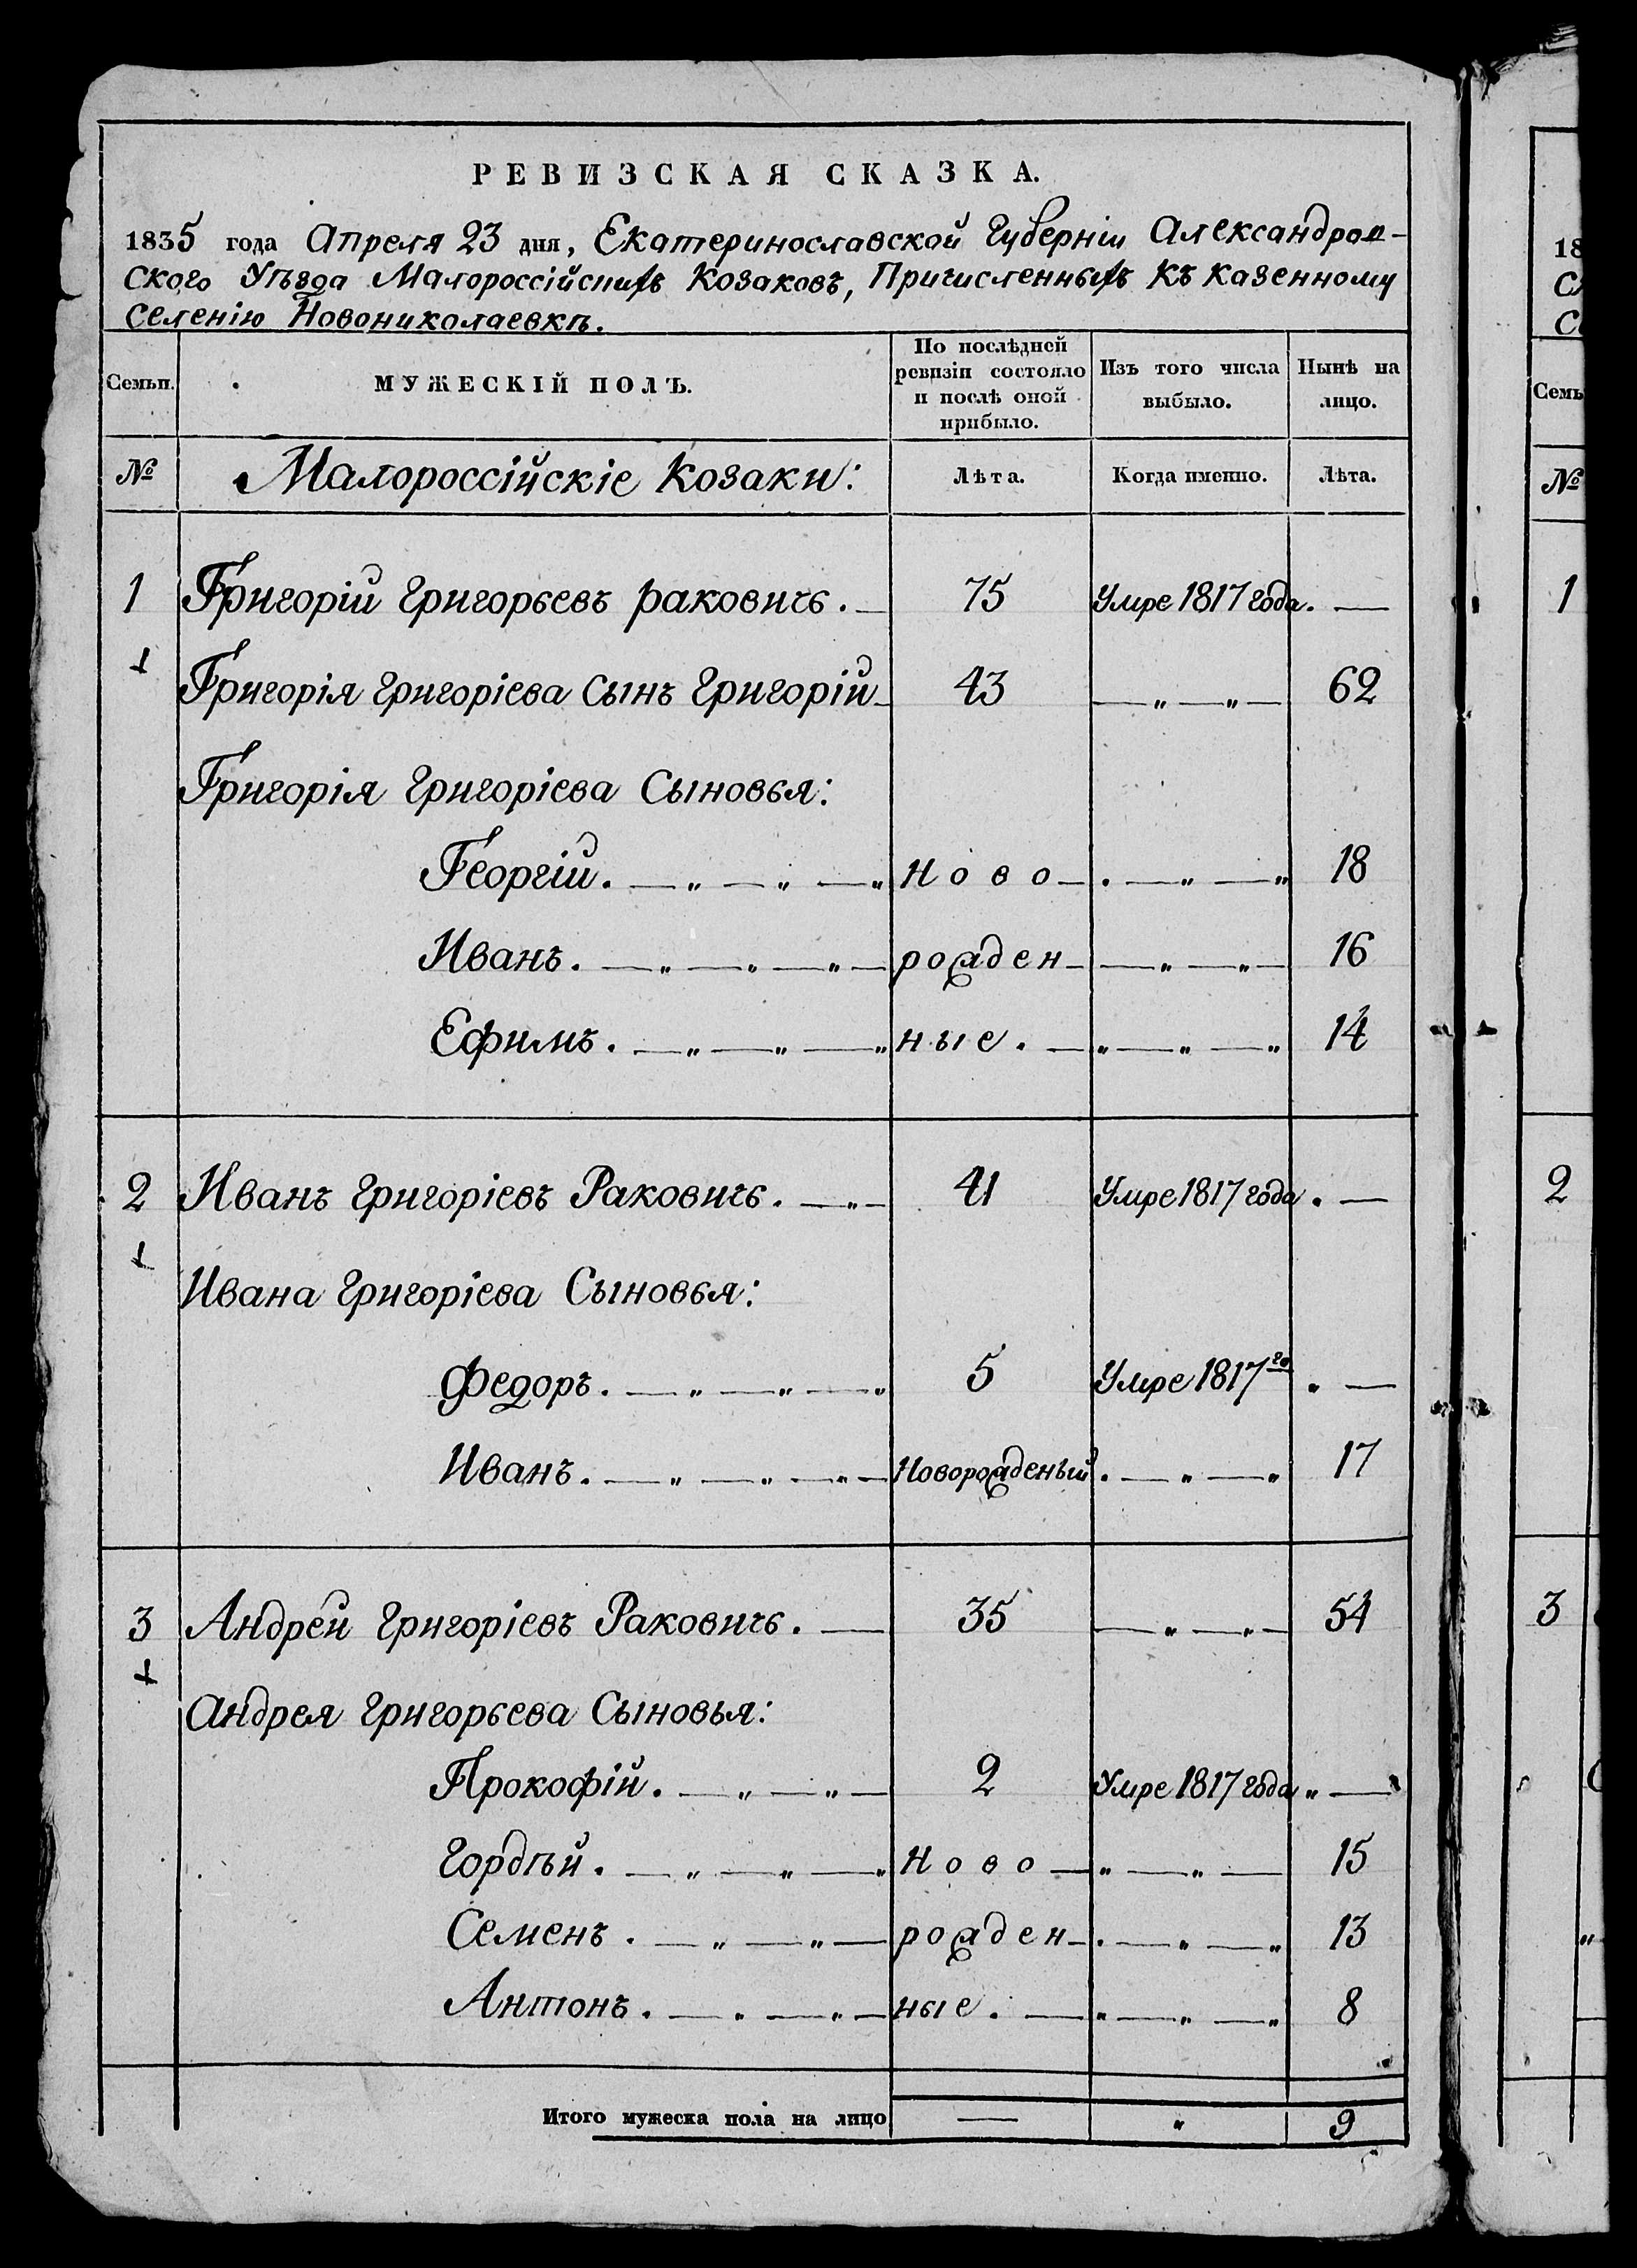 РЕВИЗСКАЯ СКАЗКА.
1835 года Апреля 23 дня, Екатеринославской Губерніи Александров-
ского Уѣзда Малороссійскихъ Козаковъ, Причисленныхъ къ казенному
селенію Новониколаевкѣ.
Семьи. МУЖЕСКІЙ ПОЛЪ. По послѣдней ревизіи состояло и послѣ оной прибыло. Изъ того числа выбыло. Нынѣ на лицо.
№ Малороссійскіе Козаки: Лѣта. Когда именно. Лѣта.
1 Григорій Григорьевъ Раковичь. — 75 Умре 1817 года. —
Григорія Григоріева Сынъ Григорій — 43 — „ — „ — 62
Григорія Григоріева Сыновья:
Георгій. — „ — „ — „ Ново — . — „ — „ 18
Иванъ. — „ — „ — „ — рожден — — „ — „ — 16
Ефимъ. — „ — „ — „ ные. — „ — „ — „ 14
2 Иванъ Григоріевъ Раковичь. — „ — 41 Умре 1817 года. —
Ивана Григоріева Сыновья:
Федоръ. — „ — „ — „ 5 Умре 1817го . —
Иванъ. — „ — „ — „ — Новорожденый. — „ — „ 17
3 Андрей Григоріевъ Раковичь. — 35 — „ — „ — 54
Андрея Григорьева Сыновья:
Прокофій. — „ — „ — 2 Умре 1817 года „ —
Гордѣй. — „ — „ — „ Ново — „ — „ — 15
Семенъ. — „ — „ — рожден — . — „ — „ 13
Антонъ. — „ — „ — ные. — „ — „ — „ 8
Итого мужеска пола на лицо — „ 9
18
Семь
№
1
2
3